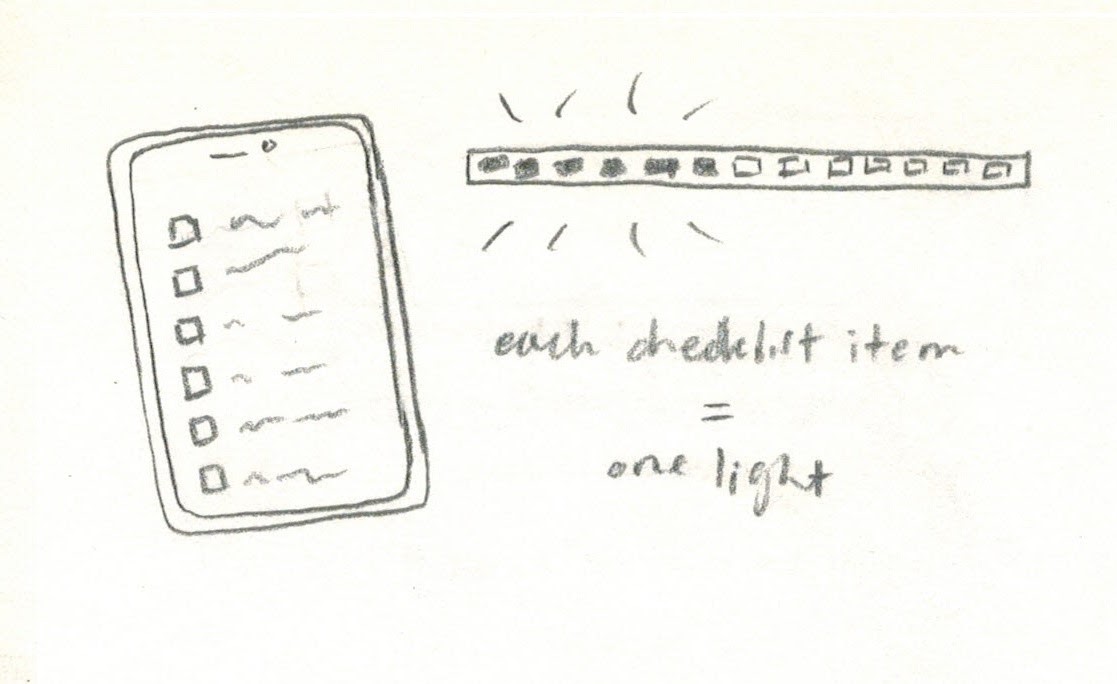 each checklist item
=
one light